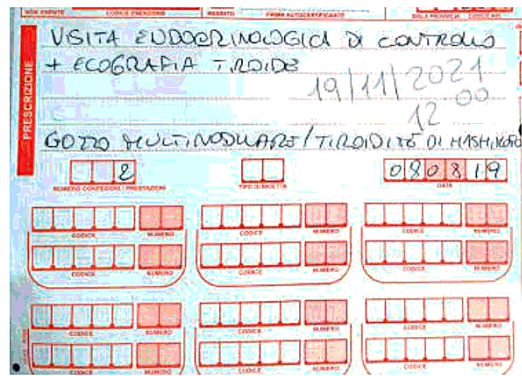 NON ESENTE CODICE ESENZIONE REDDITO FIRMA AUTOCERTIFICANTE SIGLA PROVINCIA CODICE ASL
VISITA ENDOCRINOLOGICA DI CONTROLLO
+ ECOGRAFIA TIROIDE
19/11/2021
12 00
PRESCRIZIONE
GOZZO MULTINODULARE/TIROIDITE DI HASHIMOTO
2 080819
NUMERO CONFEZIONI / PRESTAZIONI TIPO DI RICETTA DATA
CODICE NUMERO CODICE NUMERO CODICE NUMERO
CODICE NUMERO CODICE NUMERO CODICE NUMERO
CODICE NUMERO CODICE NUMERO CODICE NUMERO
CODICE NUMERO CODICE NUMERO CODICE NUMERO